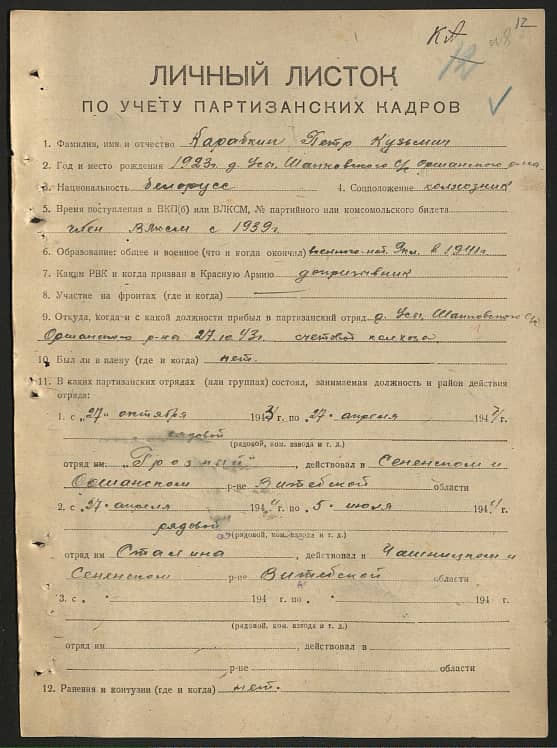 12
КА
12
ЛИЧНЫЙ ЛИСТОК
ПО УЧЕТУ ПАРТИЗАНСКИХ КАДРОВ
1. Фамилия, имя и отчество Карабкин Петр Кузьмич
2. Год и место рождения 1923г. д. Усы, Шапковского с/с Оршанского р-на
3. Национальность белорусс 4. Соцположение колхозник
5. Время поступления в ВКП(б) или ВЛКСМ, № партийного или комсомольского билета
член ВЛКСМ с 1939г.
6. Образование: общее и военное (что и когда окончил) в 1941г.
7. Каким РВК и когда призван в Красную Армию допризывник
8. Участие на фронтах (где и когда)
9. Откуда, когда и с какой должности прибыл в партизанский отряд д. Усы, Шапковского с/с
Оршанского р-на 27.10.43г. счетовод колхоза.
10. Был ли в плену (где и когда) нет.
11. В каких партизанских отрядах (или группах) состоял, занимаемая должность и район действия
отряда:
1. с „27" октября 1943г. по „27" апреля 1944г.
рядовой
(рядовой, ком. взвода и т. д.)
отряд им. „Грозный", действовал в Сененском и
Оршанском р-не Витебской области
2. с „27" апреля 1944г. по „5" июля 1944г.
рядовой
(рядовой, ком. взвода и т. д.)
отряд им Сталина, действовал в Чашницком и
Сененском р-не Витебской области
3. с „ " 194 г. по „ " 194 г.
(рядовой, ком. взвода и т. д.)
отряд им., действовал в
р-не области
12. Ранения и контузии (где и когда) нет.